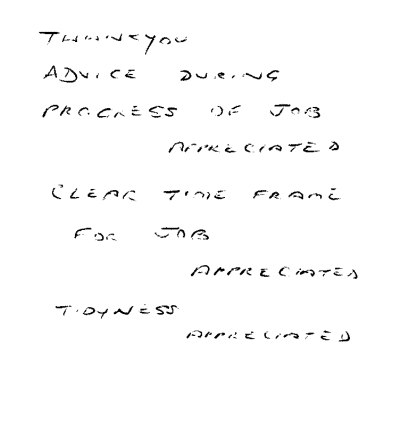 THANKYOU
ADVICE DURING
PROGRESS OF JOB
APPRECIATED
CLEAR TIME FRAME
FOR JOB
APPRECIATED
TIDYNESS
APPRECIATED